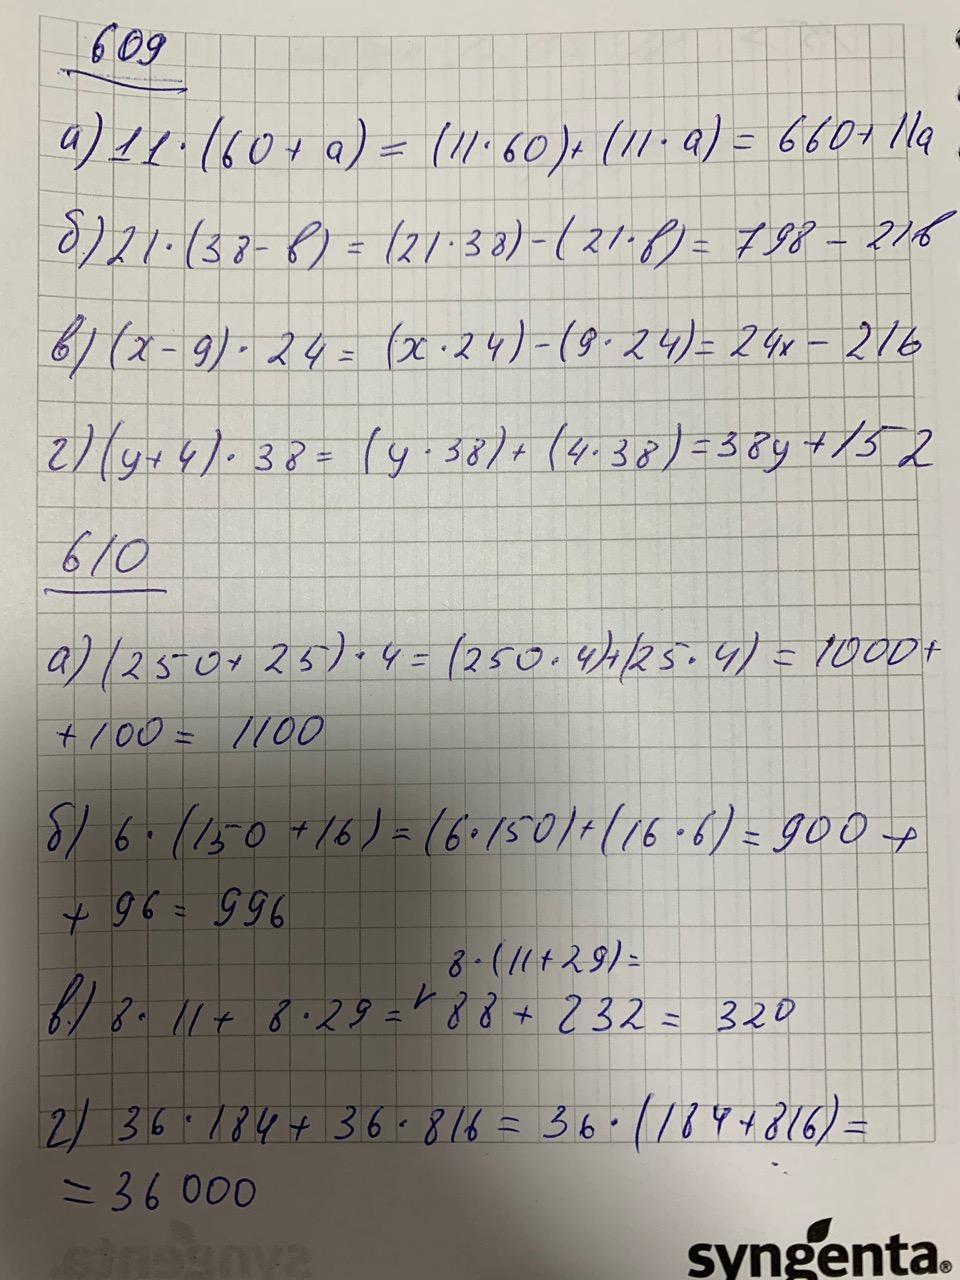 609
а) 11·(60+а) = (11·60)+(11·а) = 660+11а
б) 21·(38-в) = (21·38)-(21·в) = 798-21в
в) (х-9)·24 = (х·24)-(9·24) = 24х-216
г) (у+4)·38 = (у·38)+(4·38) = 38у+152
610
а) (250+25)·4 = (250·4)+(25·4) = 1000+
+100 = 1100
б) 6·(150+16) = (6·150)+(16·6) = 900+
+96 = 996
8·(11+29) =
в) 8·11+8·29 = 88+232 = 320
г) 36·184+36·816 = 36·(184+816) =
= 36 000
syngenta®